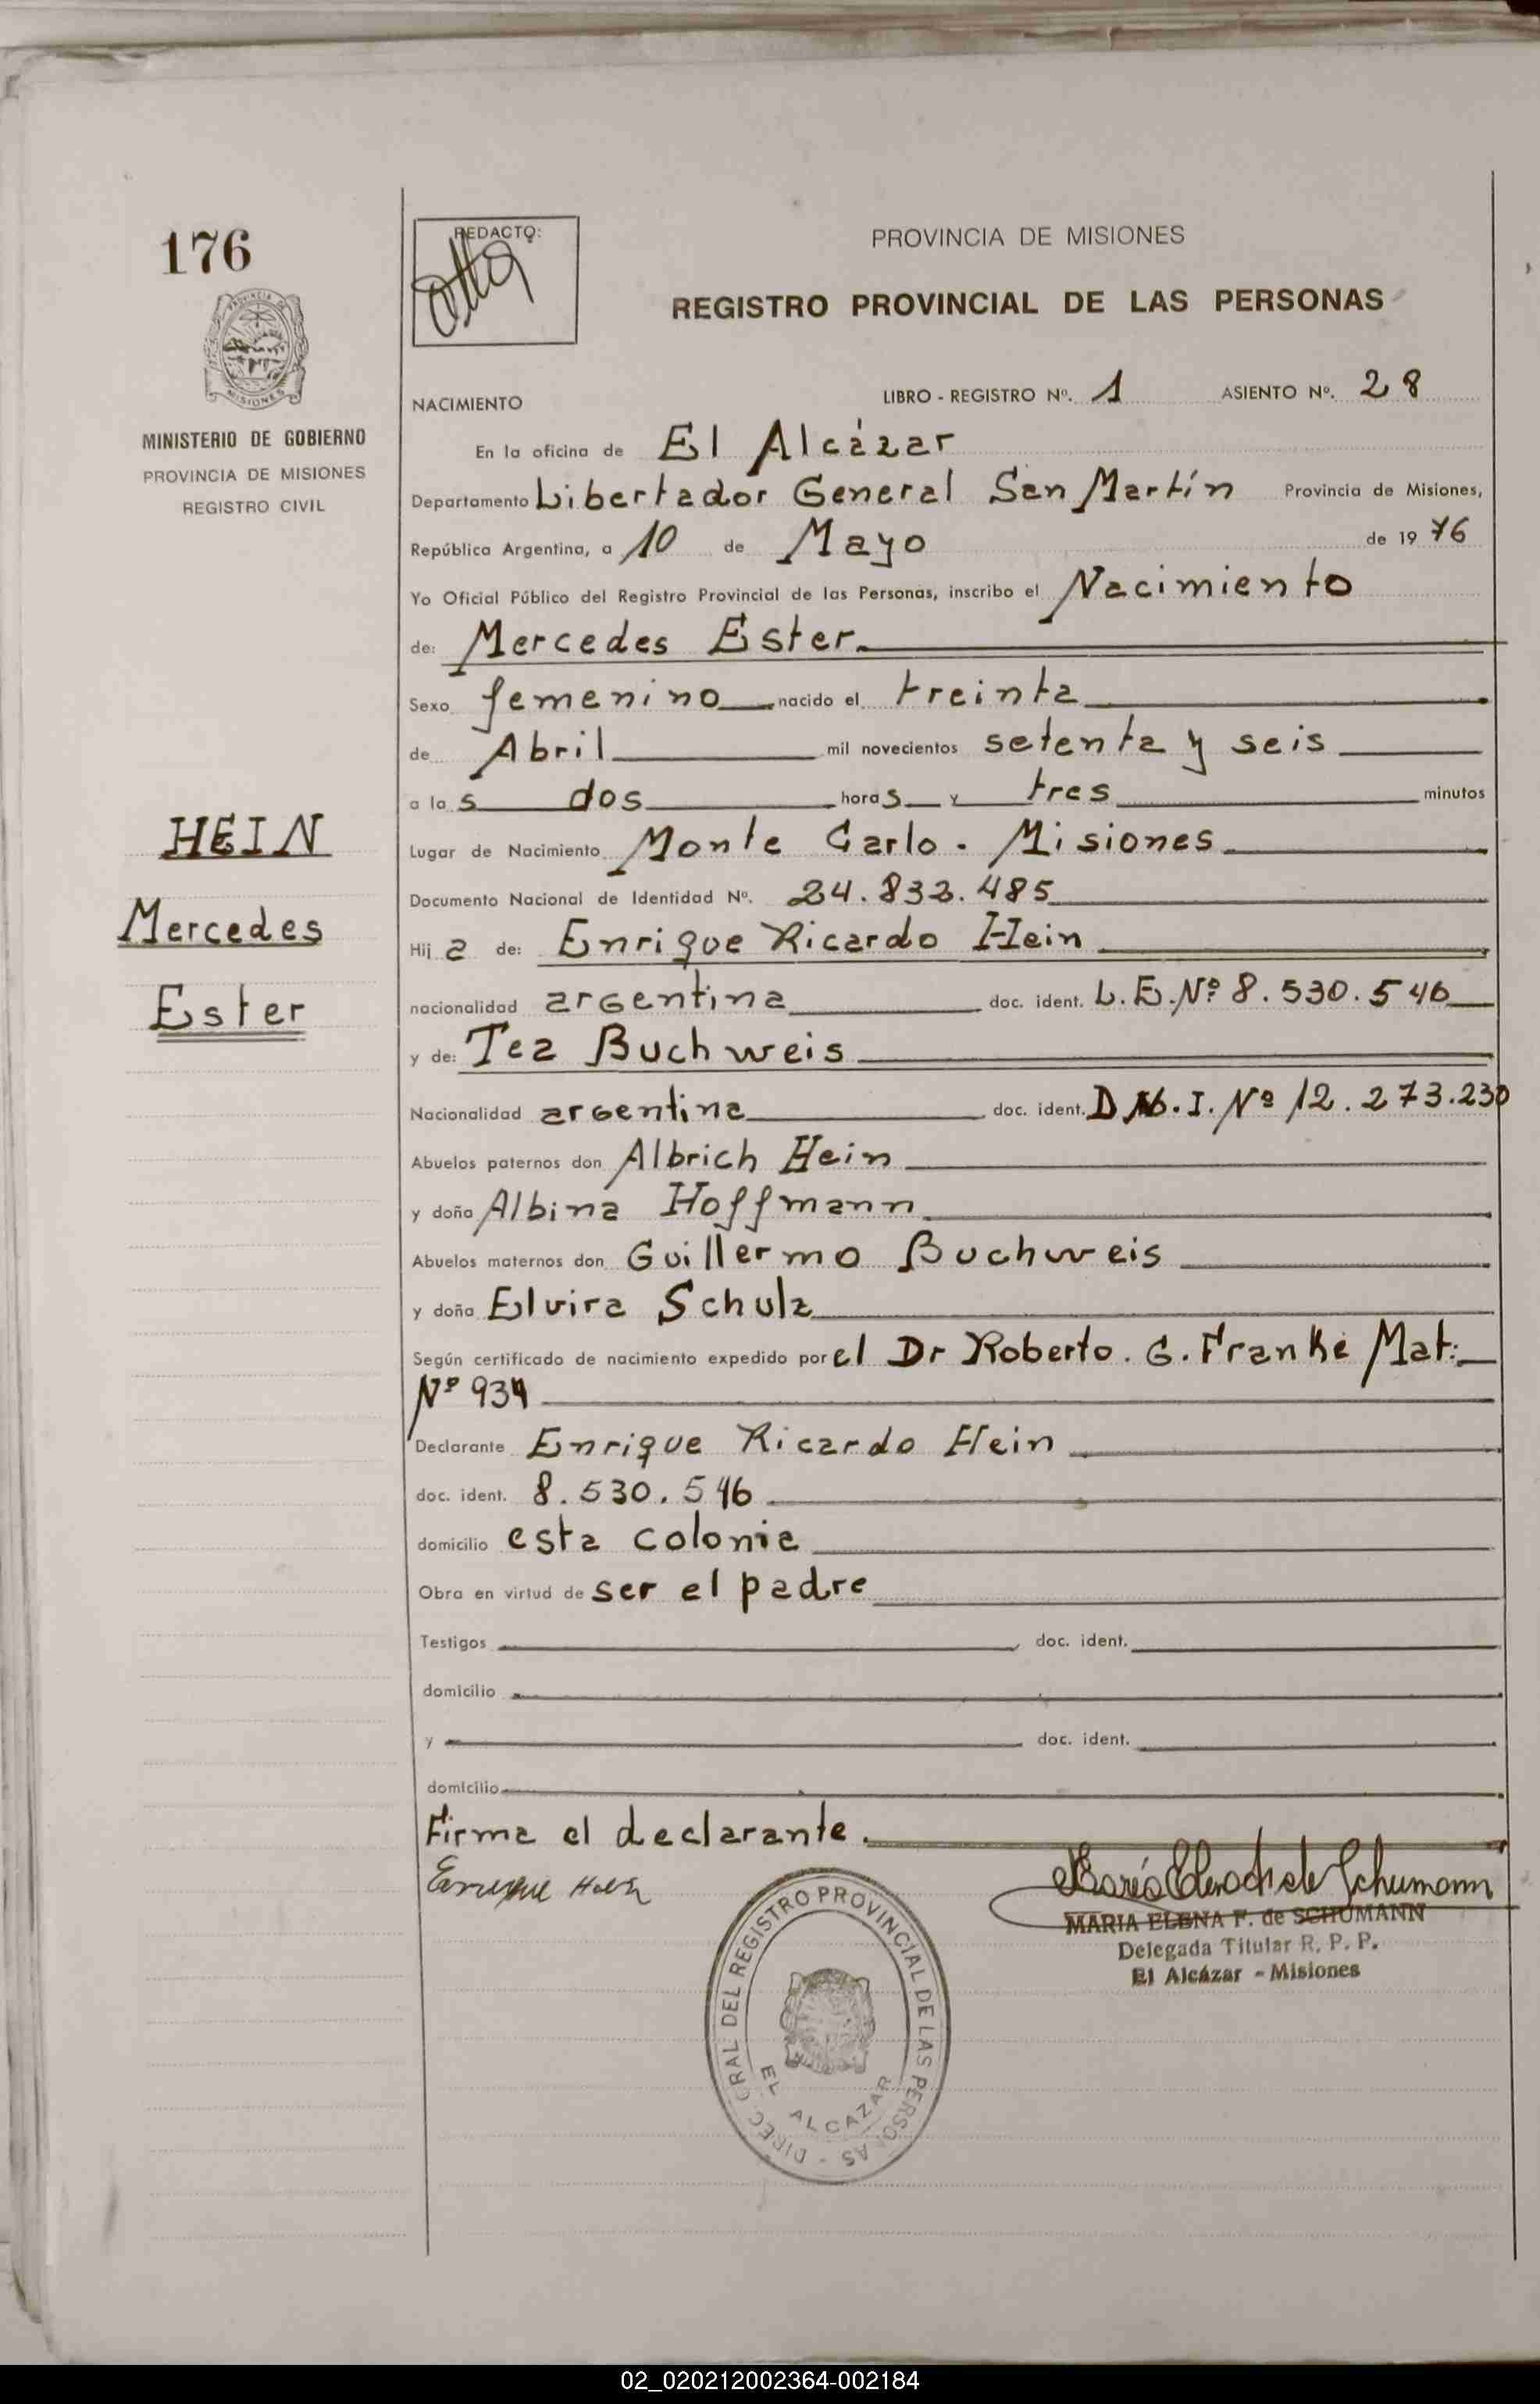 176
MINISTERIO DE GOBIERNO
PROVINCIA DE MISIONES
REGISTRO CIVIL
HEIN
Mercedes
Ester
REDACTO:
PROVINCIA DE MISIONES
REGISTRO PROVINCIAL DE LAS PERSONAS
NACIMIENTO LIBRO - REGISTRO Nº. 1 ASIENTO Nº. 28
En la oficina de El Alcázar
Departamento Libertador General San Martín Provincia de Misiones,
República Argentina, a 10 de Mayo de 1976
Yo Oficial Público del Registro Provincial de las Personas, inscribo el Nacimiento
de: Mercedes Ester.
Sexo femenino nacido el treinta
de Abril mil novecientos setenta y seis
a las dos horas y tres minutos
Lugar de Nacimiento Monte Carlo. Misiones
Documento Nacional de Identidad Nº. 24.832.485
Hija de: Enrique Ricardo Hein
nacionalidad argentina doc. ident. L.E.Nº 8.530.546
y de: Tea Buchweis
Nacionalidad argentina doc. ident. D.N.I. Nº 12.273.230
Abuelos paternos don Albrich Hein
y doña Albina Hoffmann
Abuelos maternos don Guillermo Buchweis
y doña Elvira Schulz
Según certificado de nacimiento expedido por el Dr Roberto. G. Franke Mat:
Nº 934
Declarante Enrique Ricardo Hein
doc. ident. 8.530.546
domicilio esta colonia
Obra en virtud de ser el padre
Testigos doc. ident.
domicilio
y doc. ident.
domicilio
Firma el declarante.
Enrique Hein
MARIA ELENA F. de SCHUMANN
Delegada Titular R. P. P.
El Alcázar - Misiones
DIREC. GRAL DEL REGISTRO PROVINCIAL DE LAS PERSONAS -
EL ALCAZAR
02_020212002364-002184